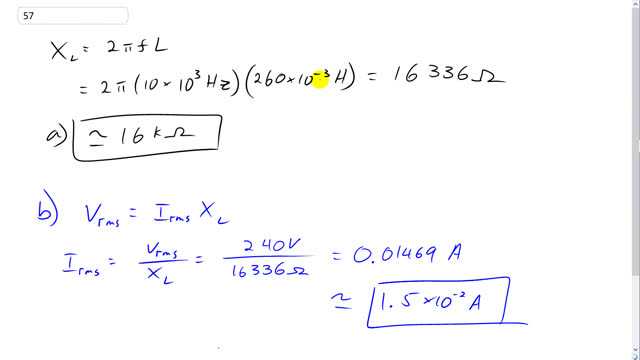 57
X_L = 2πfL
= 2π(10×10³Hz)(260×10⁻³H) = 16336Ω
a) ≃ 16kΩ
b) V_rms = I_rms X_L
I_rms = V_rms/X_L = 240V/16336Ω = 0.01469 A
≃ 1.5×10⁻²A